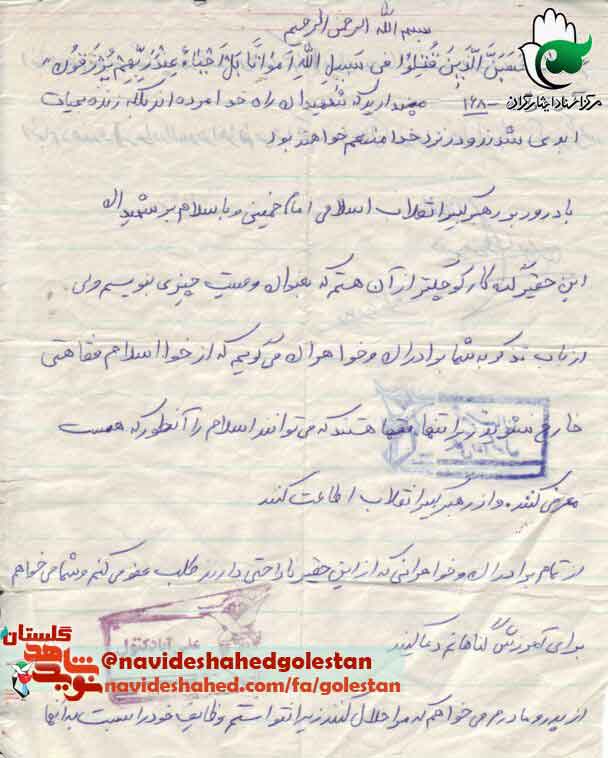 بسم الله الرحمن الرحیم
مرکز اسناد ایثارگران
تحسبن الذین قتلوا فی سبیل الله امواتا بل احیاء عند ربهم یرزقون
۱۶۸- مپندارید که شهیدان راه خدا مرده اند بلکه زنده بحیات
ابدی شدند و در نزد خدا متنعم خواهند بود
با درود بر رهبر کبیر انقلاب اسلامی امام خمینی و با سلام بر شهیدان
این حقیر گنه کار کوچکتر از آن هستم که بعنوان وصیت چیزی بنویسم ولی
از باب تذکر به شما برادران و خواهران می گویم که از خط اسلام فقاهتی
خارج نشوید زیرا تنها فقها هستند که می توانند اسلام را آنطور که هست
معرفی کنند. و از رهبر کبیر انقلاب اطاعت کنند
از تمام برادران و خواهرانی که از این حقیر ناراحتی دارند طلب عفو می کنم و شما می خواهم
برای آمرزش گناهانم دعا کنند
علی آباد کتول
گلستان
نوید شاهد
@navideshahedgolestan
navideshahed.com/fa/golestan
از پدر و مادرم می خواهم که مرا حلال کنند زیرا نتوانستم وظایف خود را نسبت به آنها